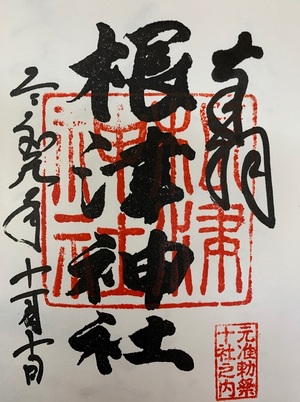 奉拝
元准勅祭
十社之内
根津神社
根津
神社
令和元年十一月